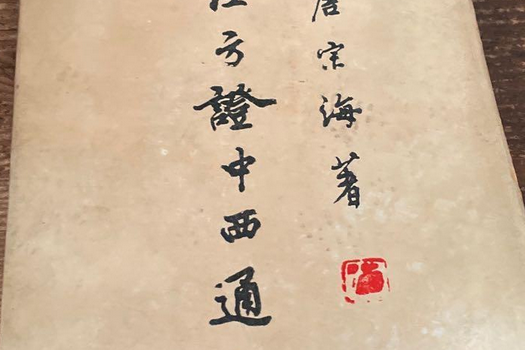 唐宗海著
經方證中西通